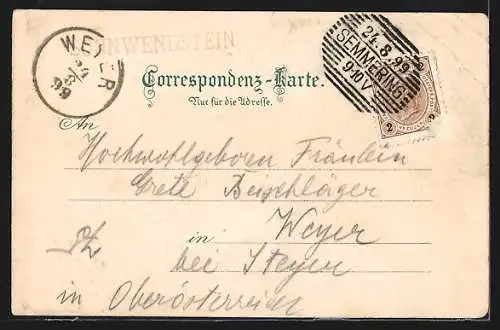 SONNWENDSTEIN
WEYER
24 8 99
24.8.99
SEMMERING
9-10V
2 2
Correspondenz-Karte.
Nur für die Adresse.
An
Hochwohlgeboren Fräulein
Grete Beischläger
in Weyer
bei Steyer
in Oberösterreich